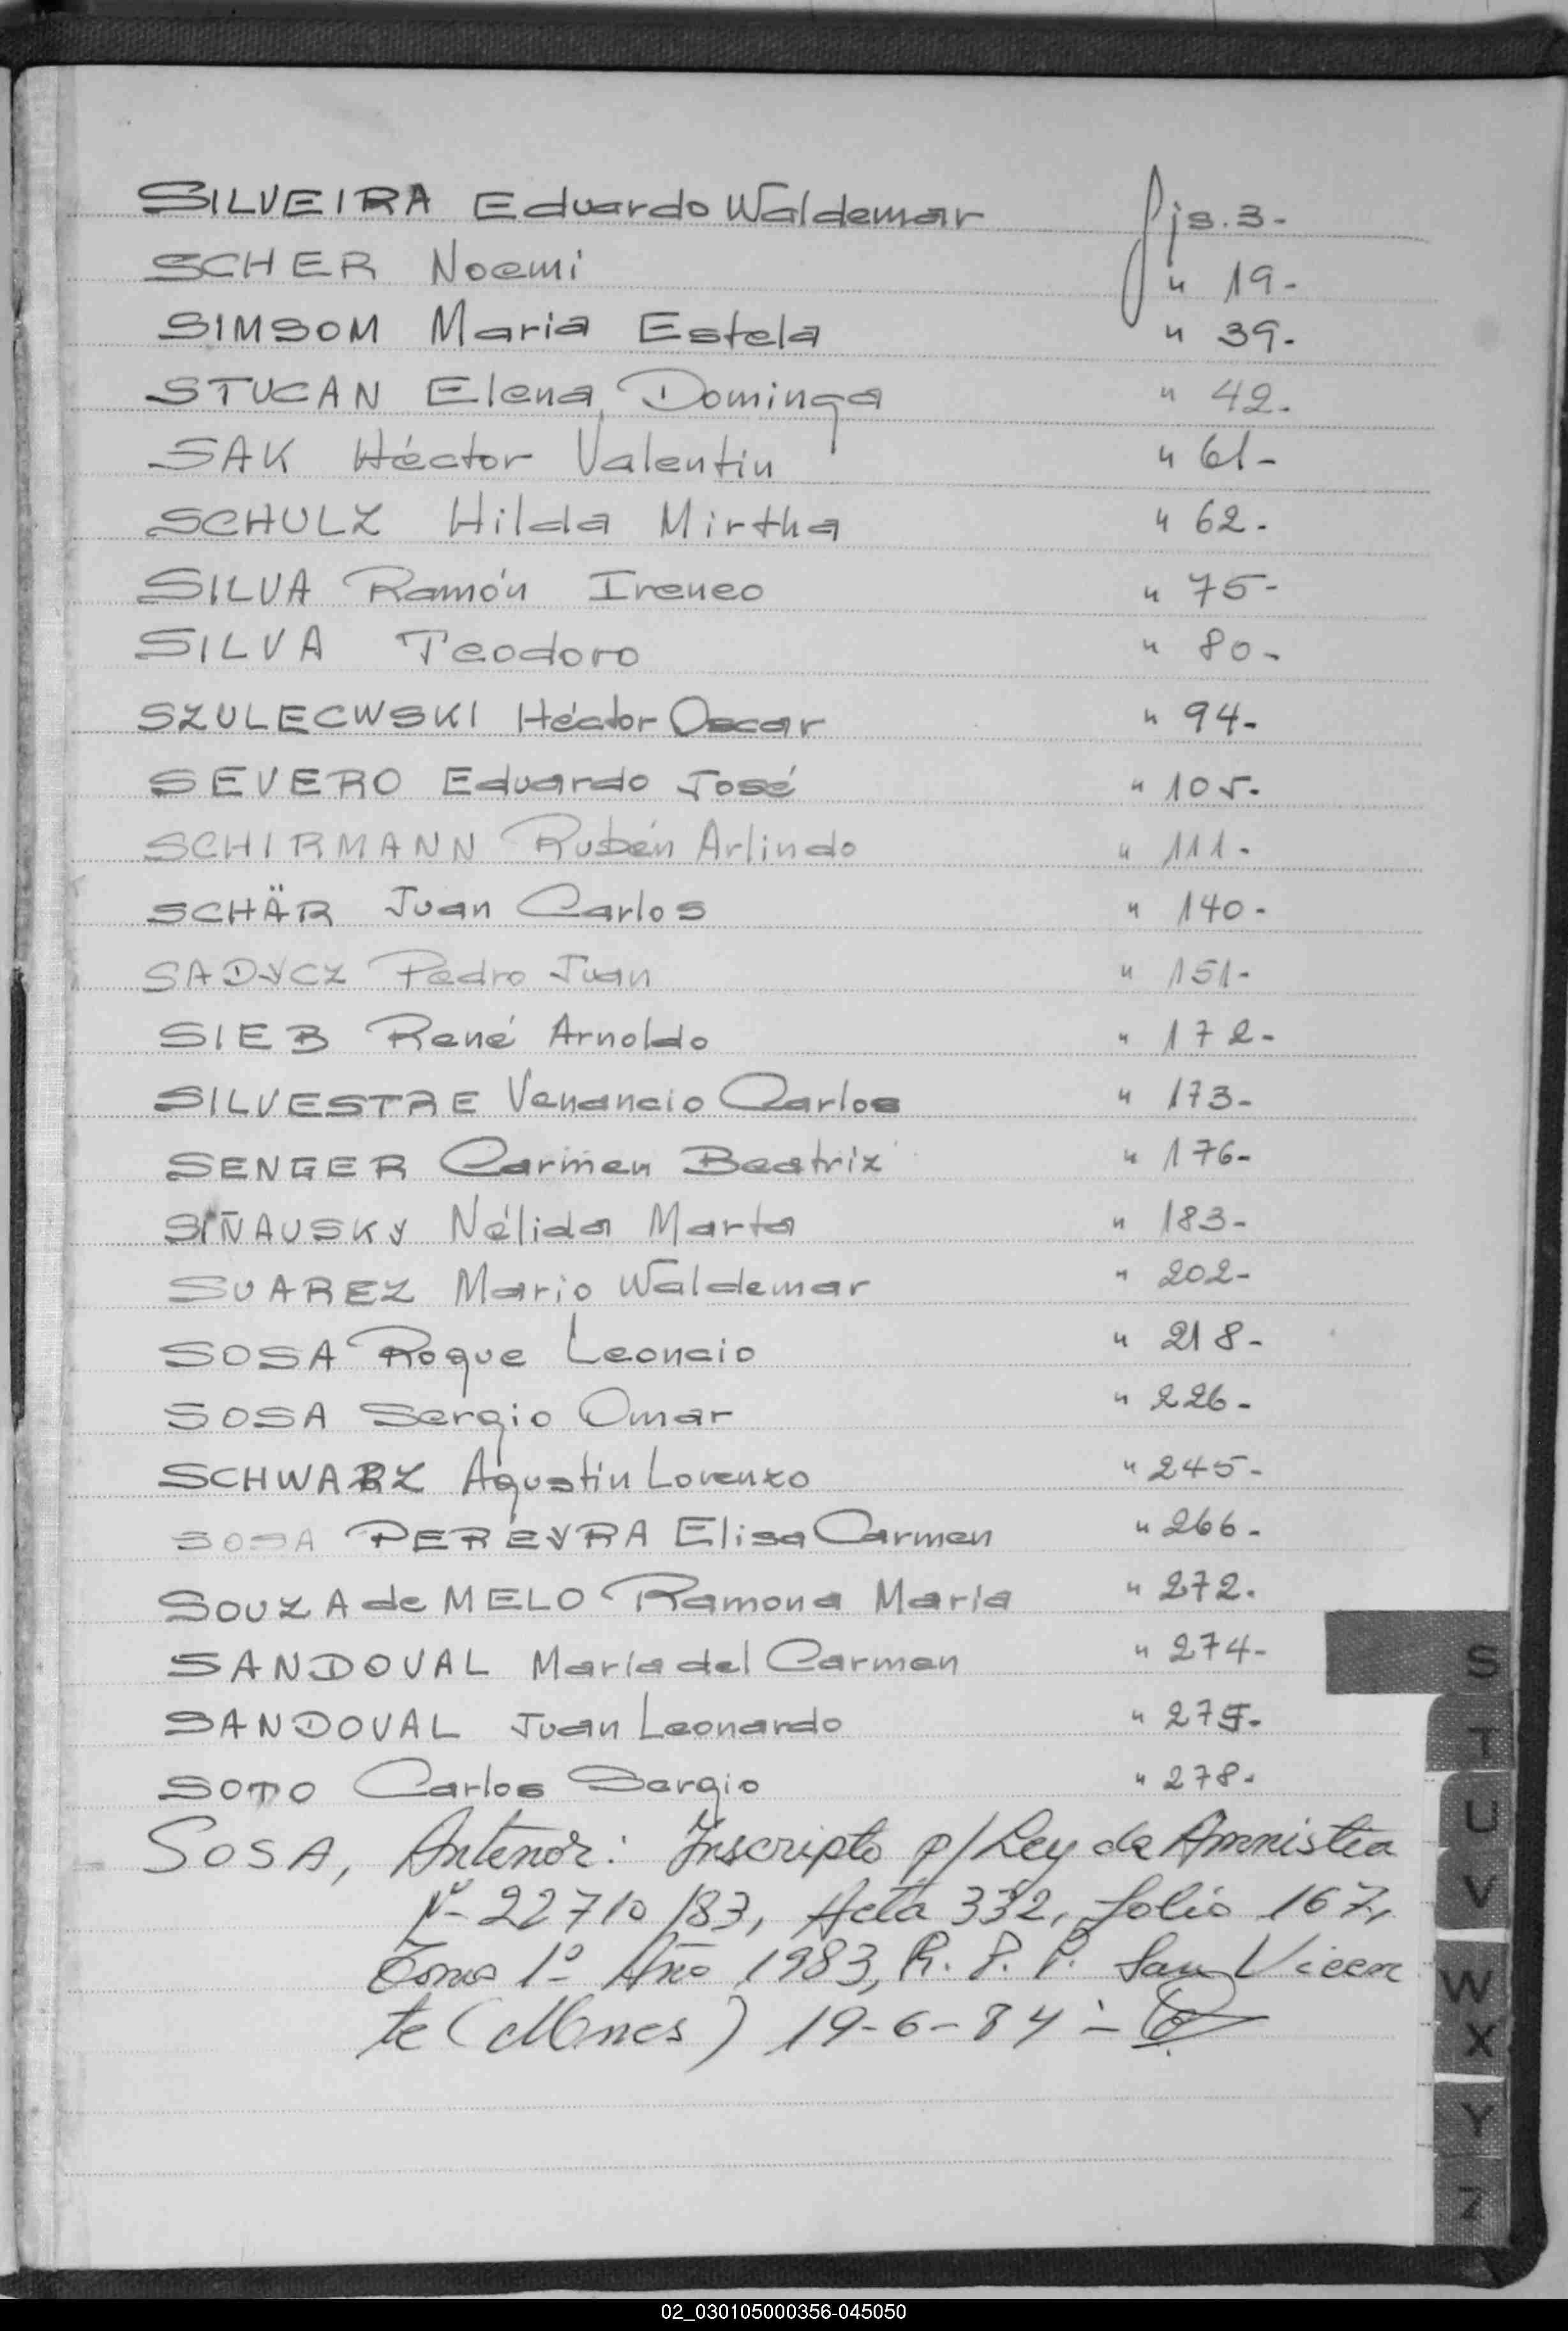 SILVEIRA Eduardo Waldemar fjs. 3-
SCHER Noemi " 19-
SIMSOM Maria Estela " 39-
STUCAN Elena Dominga " 42-
SAK Héctor Valentin " 61-
SCHULZ Hilda Mirtha " 62-
SILVA Ramón Ireneo " 75-
SILVA Teodoro " 80-
SZULECWSKI Héctor Oscar " 94-
SEVERO Eduardo José " 105-
SCHIRMANN Rubén Arlindo " 111-
SCHÄR Juan Carlos " 140-
SADYCZ Pedro Juan " 151-
SIEB René Arnoldo " 172-
SILVESTRE Venancio Carlos " 173-
SENGER Carmen Beatriz " 176-
SIÑAUSKY Nélida Marta " 183-
SUAREZ Mario Waldemar " 202-
SOSA Roque Leoncio " 218-
SOSA Sergio Omar " 226-
SCHWARZ Agustin Lorenzo " 245-
SOSA PEREYRA Elisa Carmen " 266-
SOUZA de MELO Ramona Maria " 272-
SANDOVAL María del Carmen " 274-
SANDOVAL Juan Leonardo " 275-
SOTO Carlos Sergio " 278-
SOSA, Antenor: Inscripto p/Ley de Amnistia
Nº 22710/83, Acta 332, folio 167,
Tomo 1º Año 1983, R. P. P. San Vicen
te (Mnes) 19-6-84 -
S
T
U
V
W
X
Y
Z
02_030105000356-045050